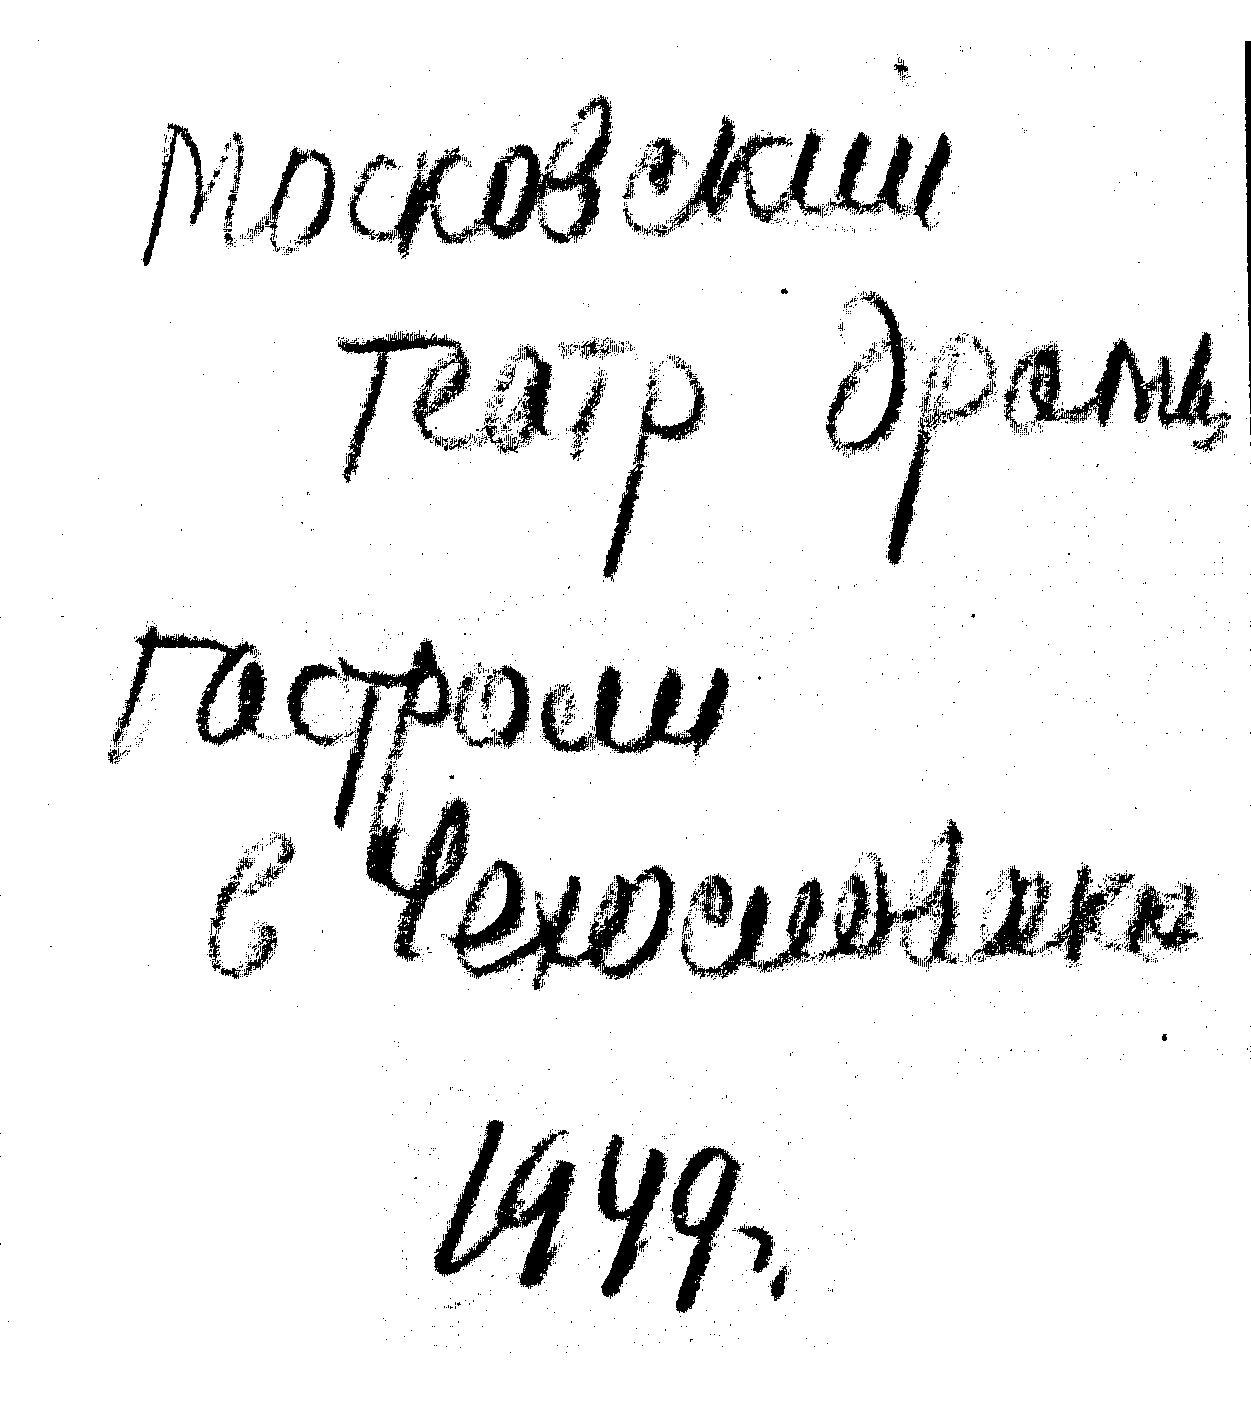 Московский
театр драмы
Гастроли
в Чехословакии
1949г.